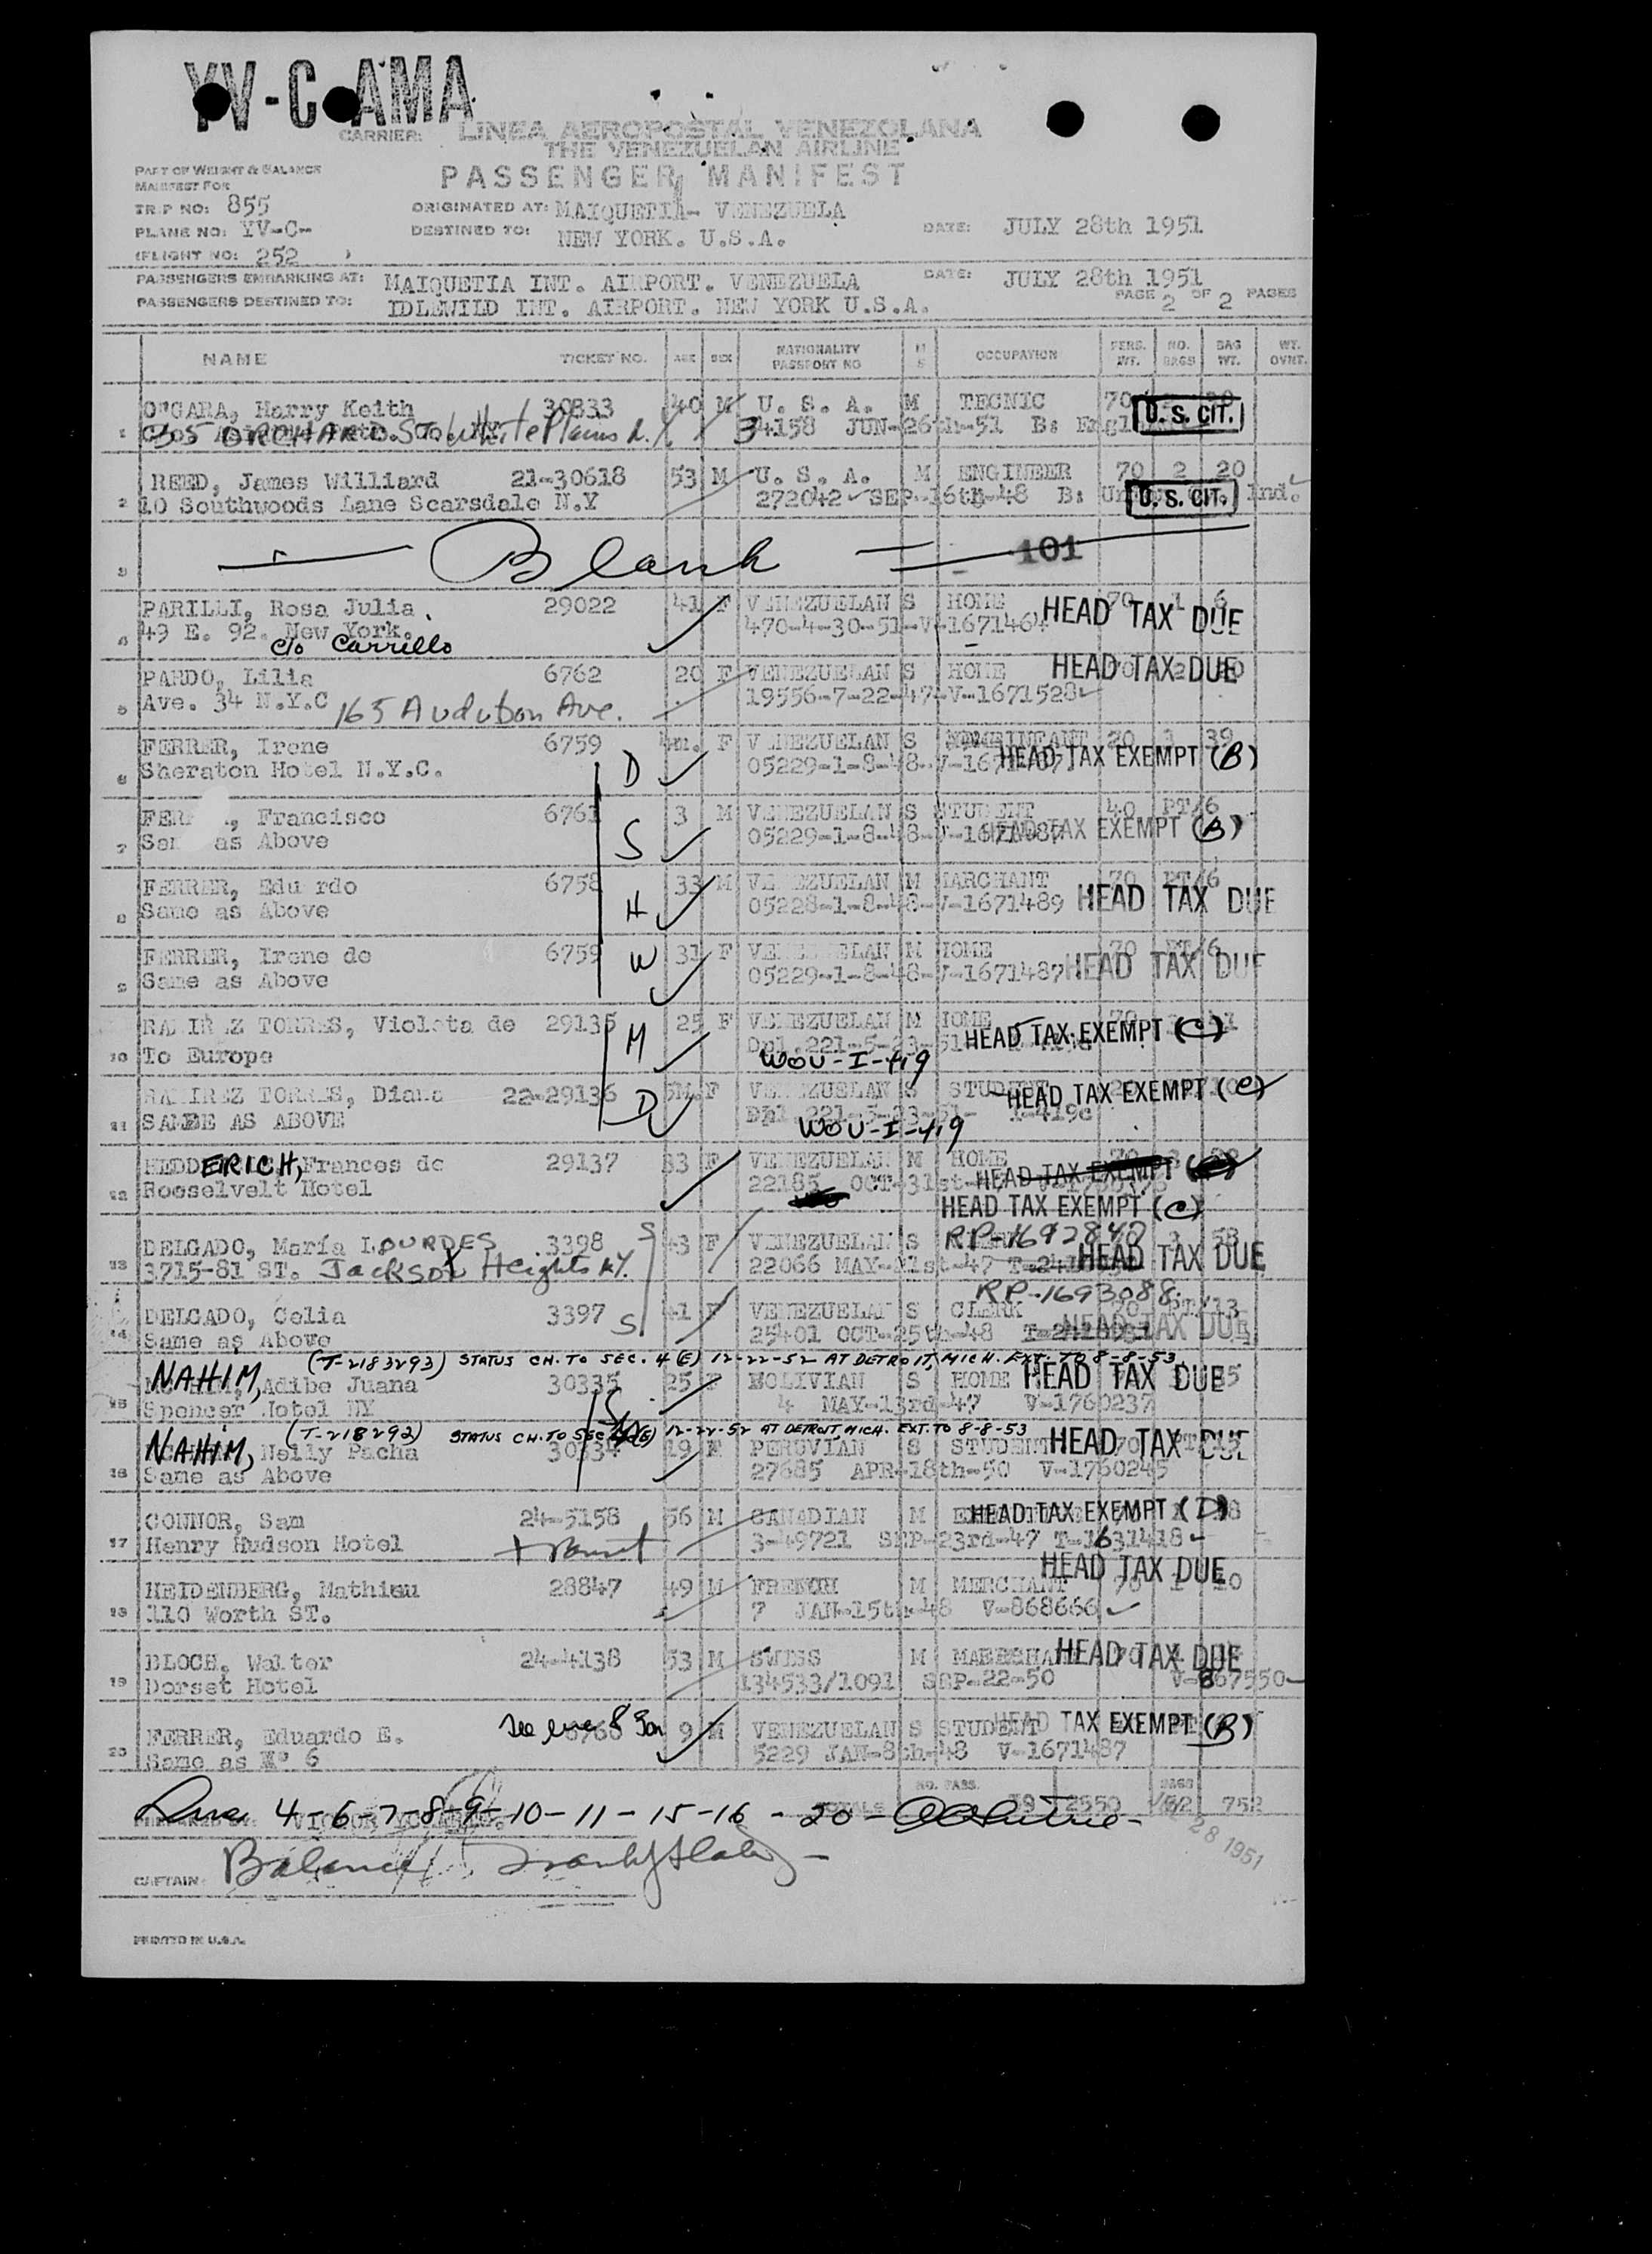 YV-C-AMA
CARRIER: LINEA AEROPOSTAL VENEZOLANA
THE VENEZUELAN AIRLINE
PART OF WEIGHT & BALANCE
MANIFEST FOR
PASSENGER MANIFEST
TRIP NO: 855 ORIGINATED AT: MAIQUETIA- VENEZUELA
PLANE NO: YV-C- DESTINED TO: NEW YORK. U.S.A. DATE: JULY 28th 1951
(FLIGHT NO: 252 )
PASSENGERS EMBARKING AT: MAIQUETIA INT. AIRPORT. VENEZUELA DATE: JULY 28th 1951
PASSENGERS DESTINED TO: IDLEWILD INT. AIRPORT. NEW YORK U.S.A. PAGE 2 OF 2 PAGES
NAME TICKET NO. AGE SEX NATIONALITY PASSPORT NO M S OCCUPATION PERS. WT. NO. BAGS BAG WT. WT. OVNT.
O'GARA, Harry Keith 30833 40 M U. S. A. M TECNIC 70
1 35 ORCHARD ST. White Plains N.Y 34158 JUN-26th-51 B: Engl U. S. CIT.
REED, James Williard 21-30618 53 M U. S. A. M ENGINEER 70 2 20
2 10 Southwoods Lane Scarsdale N.Y 272042 SEP-16th-48 B: U. S. CIT. Ind.
3 Blank 101
PARILLI, Rosa Julia 29022 41 F VENEZUELAN S HOME 70 1 6 HEAD TAX DUE
4 49 E. 92. New York. 470-4-30-51-V-1671464
c/o Carrillo
PARDO, Lilia 6762 20 F VENEZUELAN S HOME HEAD TAX DUE
5 Ave. 34 N.Y.C 165 Audubon Ave. 19556-7-22-47-V-1671528
FERRER, Irene 6759 F VENEZUELAN S INFANT 20 3 39
6 Sheraton Hotel N.Y.C. D 05229-1-8-48-V-1671487 HEAD TAX EXEMPT (B)
FERRER, Francisco 6761 3 M VENEZUELAN S STUDENT 40 PT/6
7 Same as Above S 05229-1-8-48-V-1671487 HEAD TAX EXEMPT (B)
FERRER, Edu rdo 6758 33 M VENEZUELAN M MARCHANT 70 PT/6
8 Same as Above H 05228-1-8-48-V-1671489 HEAD TAX DUE
FERRER, Irene de 6759 W 31 F VENEZUELAN M HOME 70 PT/6
9 Same as Above 05229-1-8-48-V-1671487 HEAD TAX DUE
RAMIREZ TORRES, Violeta de 29135 25 F VENEZUELAN M HOME
10 To Europe M Dpl.221-5-23-51 HEAD TAX EXEMPT (C)
WOU-I-419
RAMIREZ TORRES, Diana 22-29136 5M. F VENEZUELAN S STUDENT HEAD TAX EXEMPT (C)
11 SAME AS ABOVE D Dpl.221-5-23-51- I-419c
WOU-I-419
HEDDERICH, Frances de 29137 33 F VENEZUELAN M HOME
12 Rooselvelt Hotel 22185 OCT-31st HEAD TAX EXEMPT (C)
HEAD TAX EXEMPT (C)
DELGADO, María LOURDES 3398 S 43 F VENEZUELAN S RP-1692840 58
13 3715-81 ST. Jackson Heights N.Y. 22066 MAY-21st-47 HEAD TAX DUE
RP-1693088
DELGADO, Celia 3397 S 41 F VENEZUELAN S CLERK 70 PT/13
14 Same as Above 25401 OCT-25th-48 HEAD TAX DUE
(T-2183293) STATUS CH. TO SEC. 4 (E) 12-22-52 AT DETROIT, MICH. EXT. TO 8-8-53
NAHIM, Adibe Juana 30335 25 F BOLIVIAN S HOME HEAD TAX DUE
15 Spencer Hotel NY S 4 MAY-13rd-47 V-1760237
(T-218292) STATUS CH. TO SEC 4(E) 12-22-52 AT DETROIT, MICH. EXT. TO 8-8-53
NAHIM, Nelly Pacha 30334 19 F PERUVIAN S STUDENT HEAD TAX DUE
16 Same as Above 27685 APR-18th-50 V-1760245
CONNOR, Sam 24-5158 56 M CANADIAN M HEAD TAX EXEMPT (D)
17 Henry Hudson Hotel transit 3-49721 SEP-23rd-47 T-1631418
HEAD TAX DUE
HEIDENBERG, Mathieu 28847 49 M FRENCH M MERCHANT 70
18 110 Worth ST. ? JAN-15th-48 V-868666
BLOCH, Walter 24-4138 53 M SWESS M HEAD TAX DUE
19 Dorset Hotel 134533/1091 SEP-22-50 V-867550
FERRER, Eduardo E. 6760 see line 8 Son 9 M VENEZUELAN S STUDENT HEAD TAX EXEMPT (B)
20 Same as Nº 6 5229 JAN-8th-48 V-1671487
NO. PASS. BAGS
TOTALS 19 2550 752
4-6-7-8-9-10-11-15-16-20-
PREPARED BY: VICTOR
28 1951
CAPTAIN: Balance
PRINTED IN U.S.A.